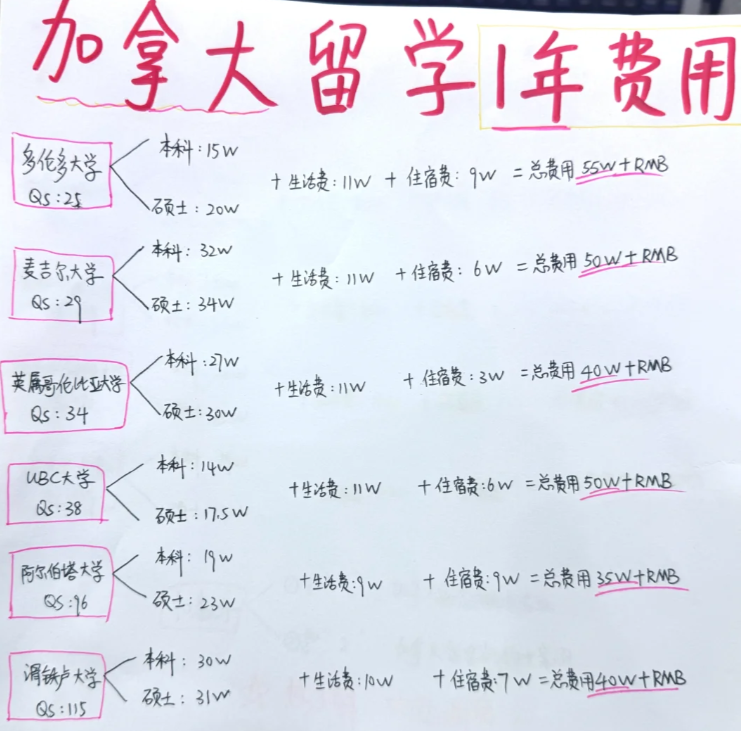 加拿大留学1年费用
多伦多大学
QS:25
本科:15W
硕士:20W
+生活费:11W +住宿费:9W =总费用55W+RMB
麦吉尔大学
QS:29
本科:32W
硕士:34W
+生活费:11W +住宿费:6W =总费用50W+RMB
英属哥伦比亚大学
QS:34
本科:27W
硕士:30W
+生活费:11W +住宿费:3W =总费用40W+RMB
UBC大学
QS:38
本科:14W
硕士:17.5W
+生活费:11W +住宿费:6W =总费用50W+RMB
阿尔伯塔大学
QS:96
本科:19W
硕士:23W
+生活费:9W +住宿费:9W =总费用35W+RMB
滑铁卢大学
QS:115
本科:30W
硕士:31W
+生活费:10W +住宿费:7W =总费用40W+RMB